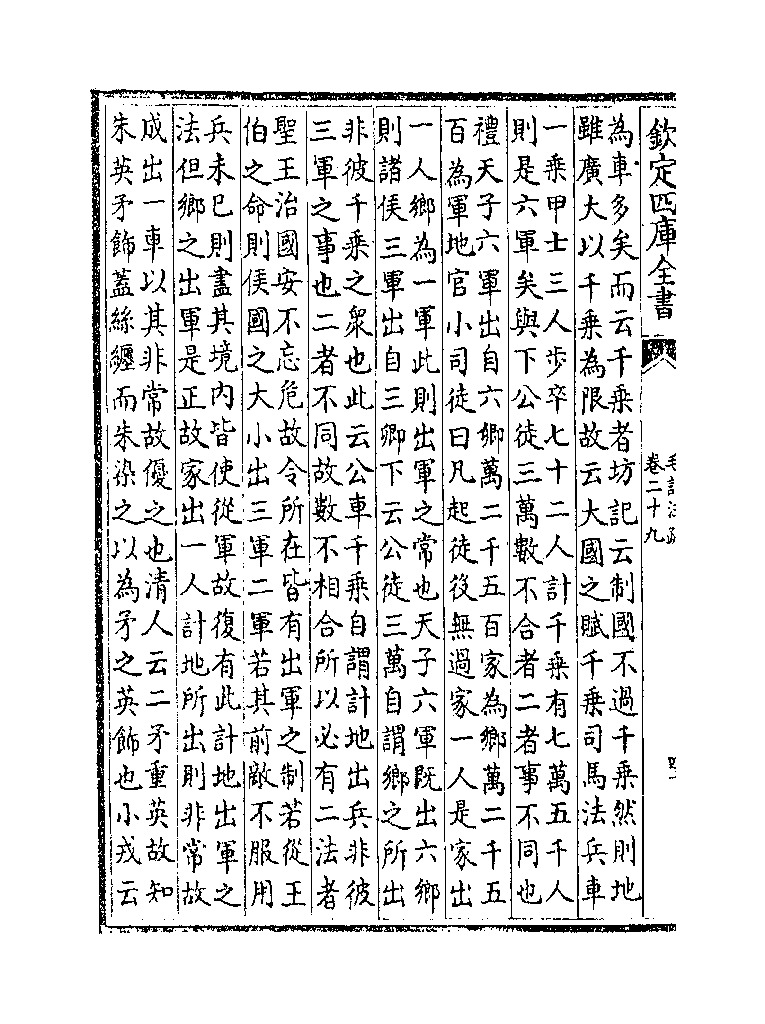 欽定四庫全書
卷二十九
為車多矣而云千乘者坊記云制國不過千乘然則地
雖廣大以千乘為限故云大國之賦千乘司馬法兵車
一乘甲士三人步卒七十二人計千乘有七萬五千人
則是六軍矣與下公徒三萬數不合者二者事不同也
禮天子六軍出自六鄉萬二千五百家為鄉萬二千五
百為軍地官小司徒曰凡起徒役無過家一人是家出
一人鄉為一軍此則出軍之常也天子六軍既出六鄉
則諸侯三軍出自三鄉下云公徒三萬自謂鄉之所出
非彼千乘之衆也此云公車千乘自謂計地出兵非彼
三軍之事也二者不同故數不相合所以必有二法者
聖王治國安不忘危故令所在皆有出軍之制若從王
伯之命則侯國之大小出三軍二軍若其前敵不服用
兵未已則盡其境內皆使從軍故復有此計地出軍之
法但鄉之出軍是正故家出一人計地所出則非常故
成出一車以其非常故優之也清人云二矛重英故知
朱英矛飾蓋絲纏而朱染之以為矛之英飾也小戎云